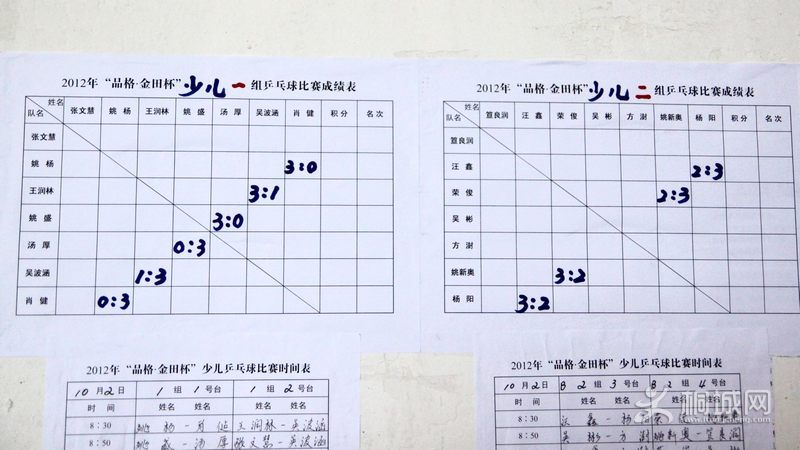 2012年“品格·金田杯”少儿一组乒乓球比赛成绩表
姓名
队名 张文慧 姚杨 王润林 姚盛 汤厚 吴波涵 肖健 积分 名次
张文慧
姚杨 3:0
王润林 3:1
姚盛 3:0
汤厚 0:3
吴波涵 1:3
肖健 0:3
2012年“品格·金田杯”少儿二组乒乓球比赛成绩表
姓名
队名 笪良润 汪鑫 荣俊 吴彬 方澍 姚新奥 杨阳 积分 名次
笪良润
汪鑫 2:3
荣俊 2:3
吴彬
方澍
姚新奥 3:2
杨阳 3:2
2012年“品格·金田杯”少儿乒乓球比赛时间表
10月2日 1组1号台 1组2号台
时间 姓名 姓名 姓名 姓名
8:30 姚杨-肖健 王润林-吴波涵
8:50 姚盛-汤厚 张文慧-吴波涵
2012年“品格·金田杯”少儿乒乓球比赛时间表
10月2日 2组3号台 2组4号台
时间 姓名 姓名 姓名 姓名
8:30 汪鑫-杨
8:50 吴彬-方澍 姚新奥-笪良润
桐城网
itongcheng.com